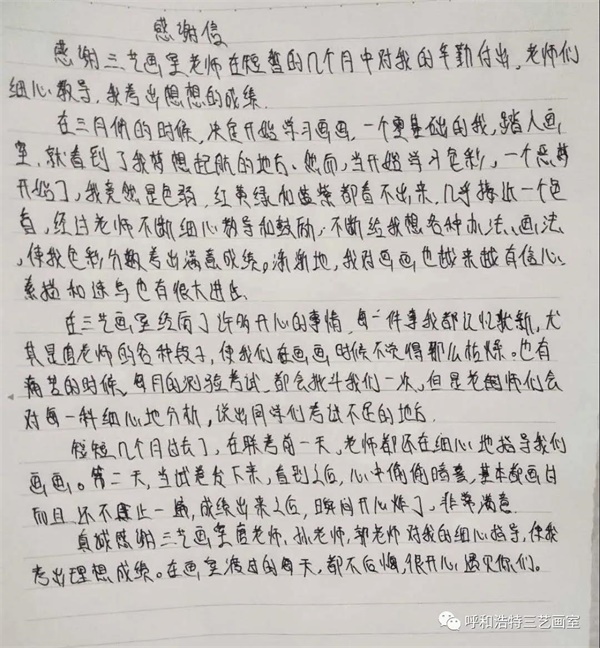 感谢信
感谢三艺画室老师在短暂的几个月中对我的辛勤付出,老师们
细心教导,我考出想想的成绩.
在三月份的时候,决定开始学习画画,一个零基础的我,踏入画
室,就看到了我梦想起航的地方、然而,当开始学习色彩,一个恶梦
开始了,我竟然是色弱,红黄绿和蓝紫都看不出来,几乎接近一个色
盲,经过老师不断细心教导和鼓励,不断给我想各种办法、画法,
,使我色彩分数考出满意成绩。渐渐地,我对画画也越来越有信心、
素描和速写也有很大进步.
在三艺画室经历了许多开心的事情,每一件事我都记忆犹新,尤
其是唐老师的各种段子,使我们在画画时候不觉得那么枯燥。也有
痛苦的时候,每月的测验考试,都会批斗我们一次,但是老师们会
对每一科细心地分析,说出同学们考试不足的地方.
短短几个月过去了,在联考前一天,老师都还在细心地指导我们
画画。第二天,当试卷发下来,看到之后,心中偷偷暗喜,基本都画过
而且还不止一遍,成绩出来之后,瞬间开心炸了,非常满意.
真诚感谢三艺画室唐老师,孙老师,郭老师对我的细心指导,使我
考出理想成绩。在画室渡过的每天,都不后悔,很开心遇见你们。
呼和浩特三艺画室